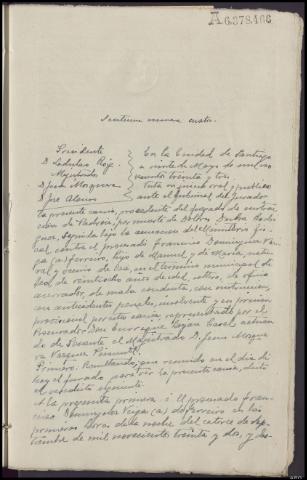 A6.378.166
Sentencia número cuatro.
Presidente
D. Ladislao Roig
Magistrados
D. Juan Mosquera
D. José Alonso
En la Ciudad de Santiago
a veinte de Mayo de mil nove
cientos treinta y tres.
Vista en juicio oral y público
ante el tribunal del Jurado
la presente causa, procedente del Juzgado de instruc
ción de Padrón, por muerte de Dolores
seguida bajo la acusación del Ministerio fis
cal contra el procesado Francisco Domínguez Vei
ga (a) ferreiro, hijo de Manuel y de María, natu
ral y vecino de en el término municipal de
de veintiocho años de edad, soltero, de oficio
aserrador, de mala conducta, con instrucción,
sin antecedentes penales, insolvente y en prisión
provisional por esta causa, representado por el
Procurador Don Enrique actuan
do de Ponente el Magistrado D. Juan Mosque
ra Vázquez Pimentel.
Primero: Resultando, que reunido en el día de
hoy el Jurado para ver la presente causa, dictó
el veredicto siguiente.
A la pregunta primera: ¿El procesado Fran
cisco Domínguez Veiga (a) ferreiro en las
primeras horas de la noche del catorce de Sep
tiembre de mil novecientos treinta y dos, y